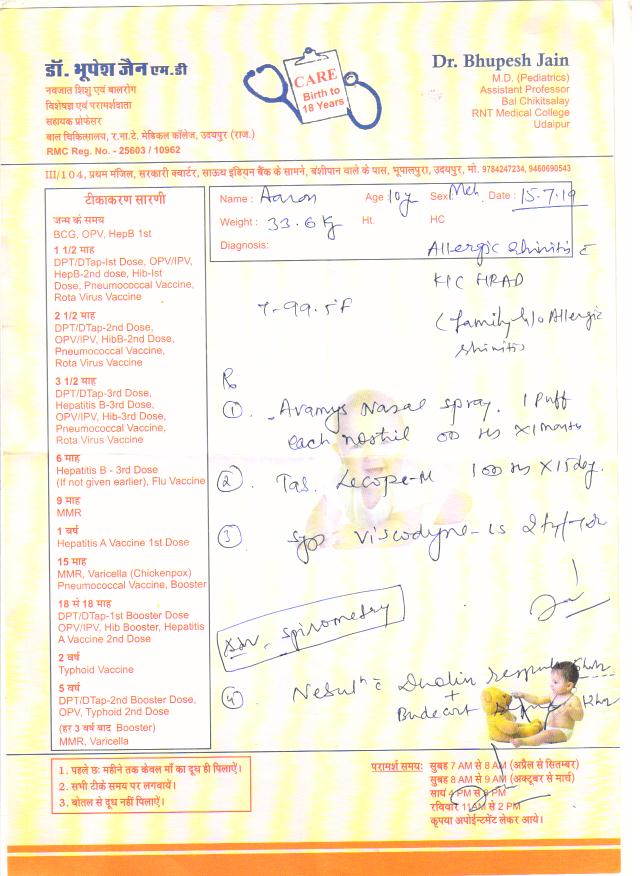 डॉ. भूपेश जैन एम.डी
नवजात शिशु एवं बालरोग
विशेषज्ञ एवं परामर्शदाता
सहायक प्रोफेसर
बाल चिकित्सालय, र.ना.टे. मेडिकल कॉलेज, उदयपुर (राज.)
RMC Reg. No. - 25603 / 10962
CARE
Birth to
18 Years
Dr. Bhupesh Jain
M.D. (Pediatrics)
Assistant Professor
Bal Chikitsalay
RNT Medical College
Udaipur
III/104, प्रथम मंजिल, सरकारी क्वार्टर, साऊथ इंडियन बैंक के सामने, बंशीपान वाले के पास, भूपालपुरा, उदयपुर, मो. 9784247234, 9460690543
टीकाकरण सारणी
जन्म के समय
BCG, OPV, HepB 1st
1 1/2 माह
DPT/DTap-Ist Dose, OPV/IPV,
HepB-2nd dose, Hib-Ist
Dose, Pneumococcal Vaccine,
Rota Virus Vaccine
2 1/2 माह
DPT/DTap-2nd Dose,
OPV/IPV, HibB-2nd Dose,
Pneumococcal Vaccine,
Rota Virus Vaccine
3 1/2 माह
DPT/DTap-3rd Dose,
Hepatitis B-3rd Dose,
OPV/IPV, Hib-3rd Dose,
Pneumococcal Vaccine,
Rota Virus Vaccine
6 माह
Hepatitis B - 3rd Dose
(If not given earlier), Flu Vaccine
9 माह
MMR
1 वर्ष
Hepatitis A Vaccine 1st Dose
15 माह
MMR, Varicella (Chickenpox)
Pneumococcal Vaccine, Booster
18 से 18 माह
DPT/DTap-1st Booster Dose
OPV/IPV, Hib Booster, Hepatitis
A Vaccine 2nd Dose
2 वर्ष
Typhoid Vaccine
5 वर्ष
DPT/DTap-2nd Booster Dose,
OPV, Typhoid 2nd Dose
(हर 3 वर्ष बाद Booster)
MMR, Varicella
Name : Aaron Age 10y Sex Mch Date : 15.7.19
Weight : 33.6 kg Ht. HC
Diagnosis:
Allergic rhinitis c
K/C HRAD
(family h/o Allergic
rhinitis
T-99.5°F
R
1. Avamys Nasal spray. 1 puff
each nostril OD HS X 1 month
2. Tab. Lecope-M 1 OD HS X 15 day.
3 Syp Viscodyne-LS
Adv. spirometry
4. Nebulⁿ c Duolin respules 8hr
+
Budecort 12hr
1. पहले छः महीने तक केवल माँ का दूध ही पिलाएँ।
2. सभी टीके समय पर लगवायें।
3. बोतल से दूध नहीं पिलाएँ।
परामर्श समय: सुबह 7 AM से 8 AM (अप्रैल से सितम्बर)
सुबह 8 AM से 9 AM (अक्टूबर से मार्च)
सायं 4 PM से 8 PM
रविवार 11 AM से 2 PM
कृपया अपोईन्टमेंट लेकर आये।